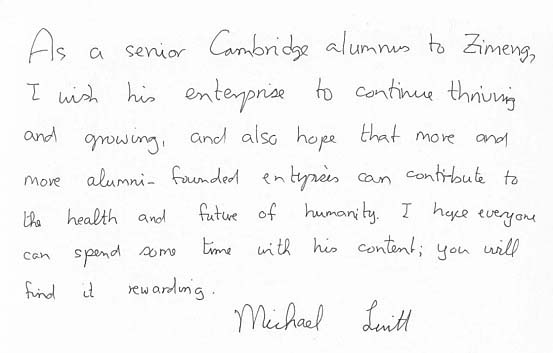 As a senior Cambridge alumnus to Zimeng,
I wish his enterprise to continue thriving
and growing, and also hope that more and
more alumni-founded entyprises can contribute to
the health and future of humanity. I hope everyone
can spend some time with his content; you will
find it rewarding.
Michael Levitt